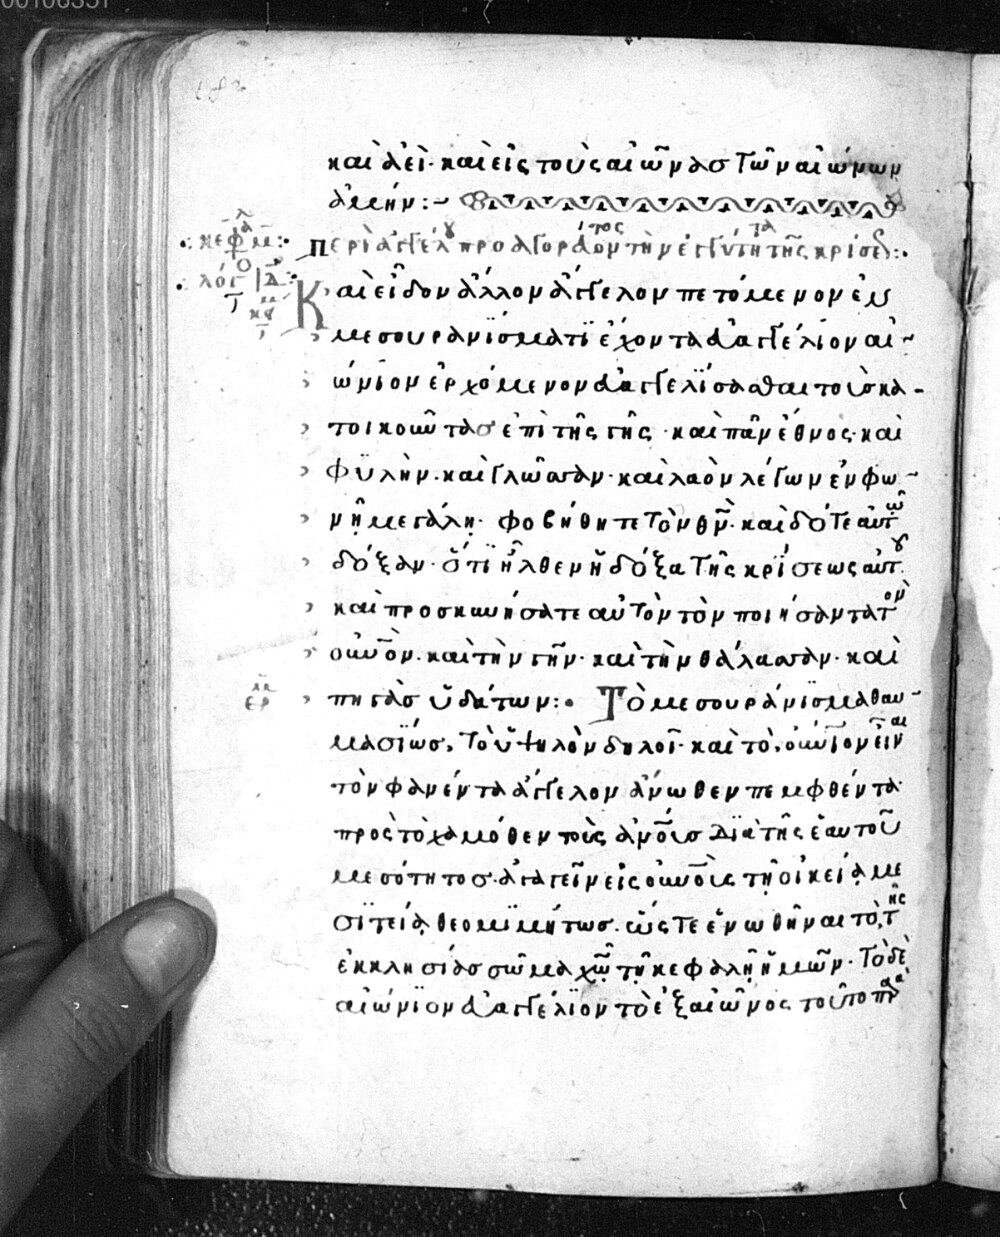 καὶ ἀεὶ· καὶ εἰς τοὺς αἰῶνασ τῶν αἰώνων
ἀμήν:~
κεφ λ μ:
περὶ ἀγγέλου προαγορεύοντος τὴν ἐγγύτητα τῆς κρίσε:
λόγ
Καὶ εἶδον ἄλλον ἄγγελον πετόμενον ἐν
μεσουρανίσματϊ ἔχοντα εὐαγγέλϊον αἰ~
ώνϊον ἐρχόμενον εὐαγγελΐσασθαι τοὺσ κα-
τοικοῦντασ ἐπὶ τῆς γῆς· καὶ πᾶν ἔθνος· καὶ
φϋλὴν· καὶ γλῶσσαν· καὶ λαὸν λέγων ἐν φω~
νῇ μεγάλῃ· φοβήθητε τὸν θν· καὶ δότε αὐτῶ
δόξαν· ὅτϊ ἦλθεν ἡ δόξα τῆς κρΐσεως αὐτου
καὶ προσκυνήσατε αὐτὸν τὸν ποιήσαντα τὸν
οὐνον· καὶ τὴν γῆν· καὶ τὴν θάλασσαν· καὶ
ερ
πηγὰσ ὑδάτων:· Τὸ μεσουράνϊσμα θαυ~
μασΐωσ, τὸ ὑψηλὸν δηλοῖ· καὶ τὸ, οὐνιον εἶναι
τὸν φανέντα ἄγγελον ἄνωθεν πεμφθέντα
πρὸς τὸ χαμόθεν τοὺς ἀνοισ δϊὰ τῆς ἑαυτοῦ
μεσότητοσ· ἀναγεῖν εἰς οὐνοὺς τῇ οἰκείᾳ με
σϊτείᾳ θεομϊμήτωσ· ὥς τε ἑνωθῆναι τὸ, τῆς
ἐκκλησίασ σῶμα χῶ τῇ κεφαλῇ ἡμῶν· Τὸ δὲ
αἰώνϊον εὐαγγέλϊον τὸ ἐξ αἰῶνος